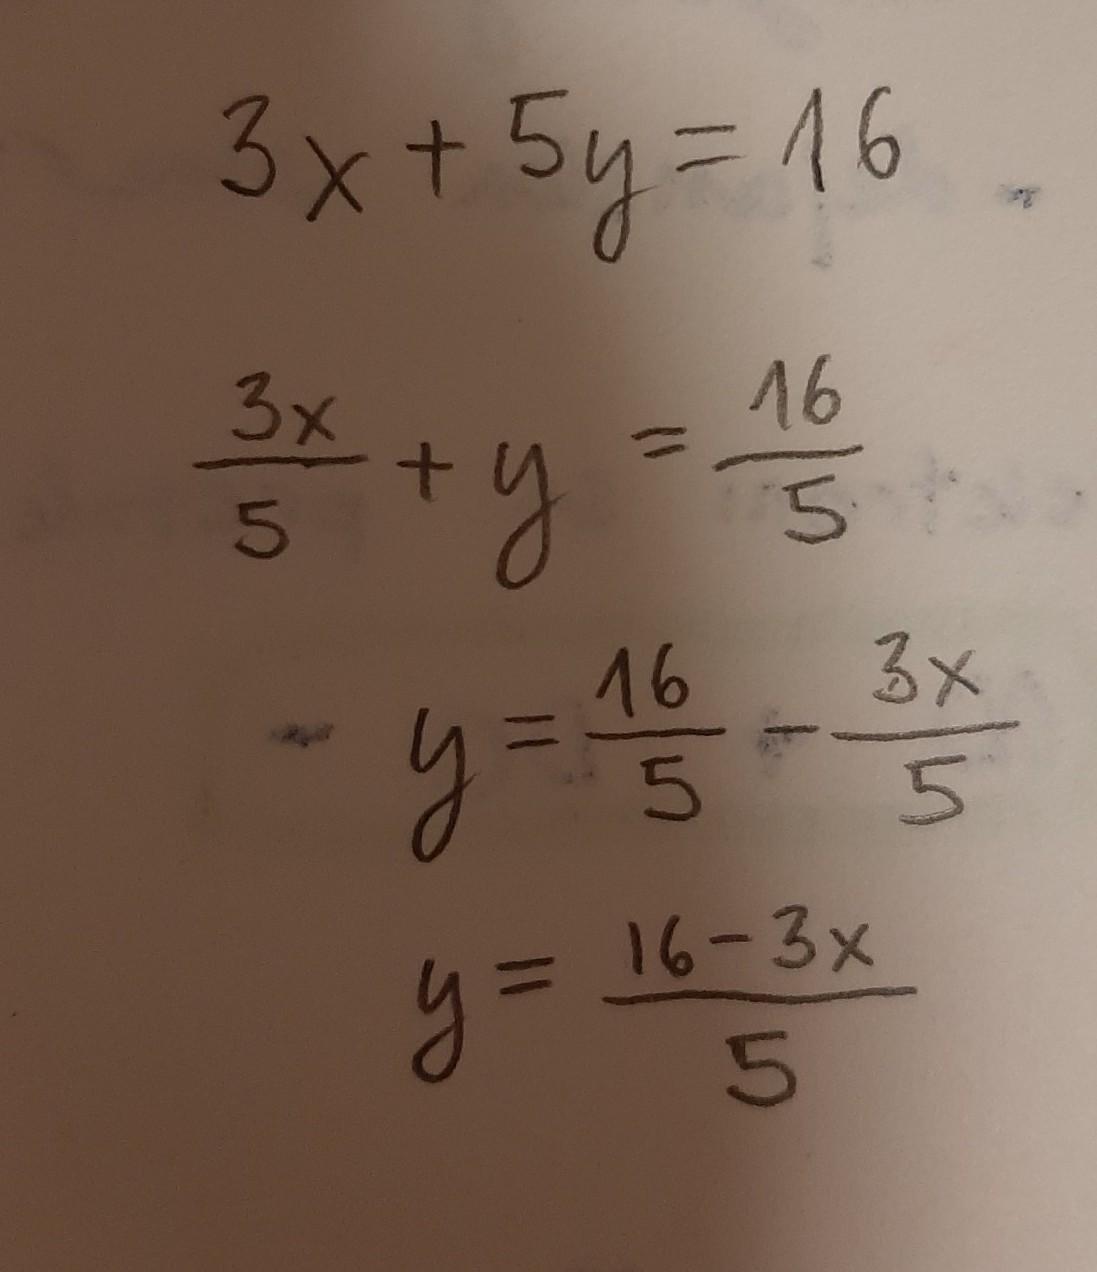 3x + 5y = 16
3x/5 + y = 16/5
y = 16/5 - 3x/5
y = (16 - 3x)/5